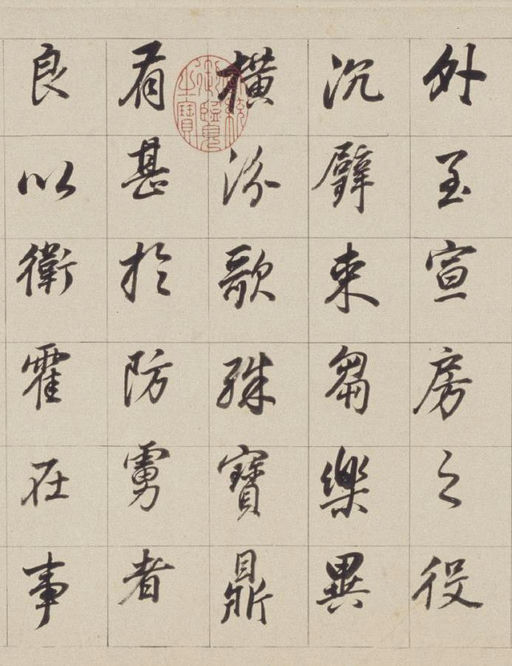 外至宣房之役
沉璧束芻樂異
橫汾歌殊寶鼎
有甚於防虜者
良以衛霍在事